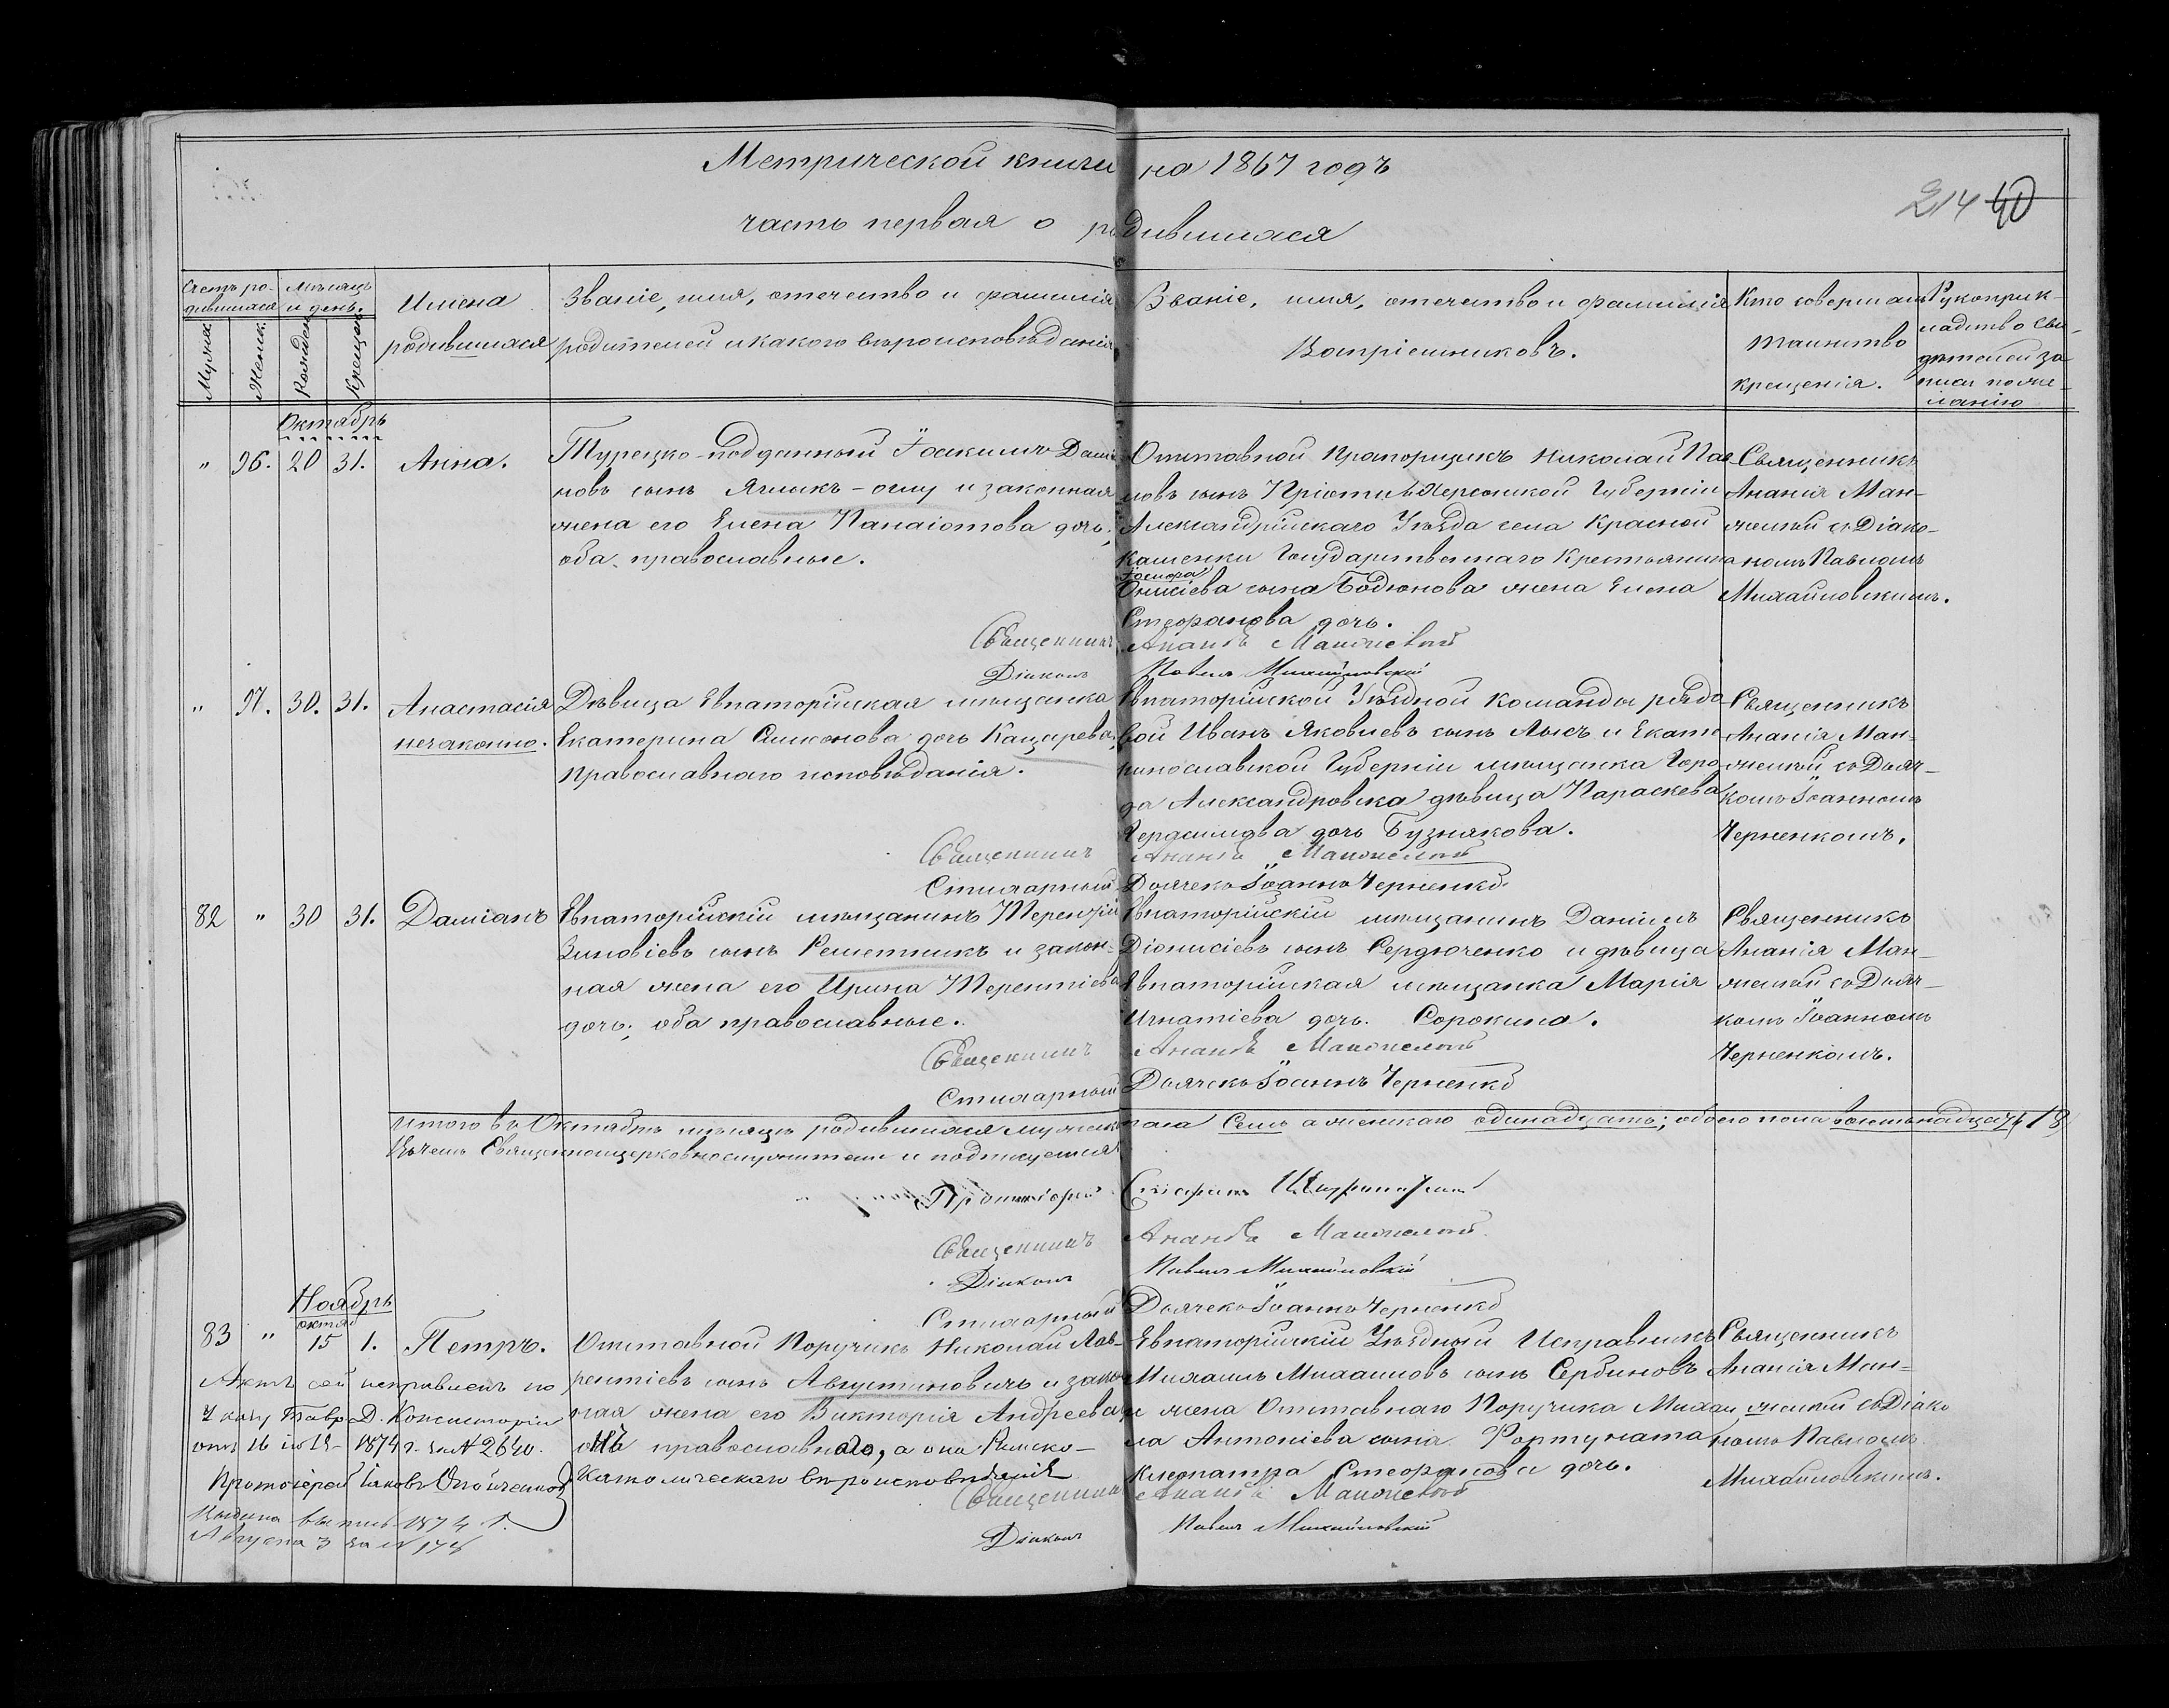 Метрической книги на 1867 годъ
214 40
часть первая о родившихся
Счетъ ро-
дившихся
Мужск.
Женск.
Мѣсяцъ
и день.
Рожден.
Крещен.
Имена
родившихся
Званіе, имя, отечество и фамилія
родителей и какого вѣроисповѣданія
Званіе, имя, отечество и фамилія
Воспріемниковъ.
Кто совершалъ
таинство
крещенія.
Рукоприк-
ладство сви-
дѣтелей за-
писи по же-
ланію
Октябрь
" 96. 20 31. Анна.
Турецко-подданный Іоакимъ
новъ сынъ Ячмыкъ-оглу и законная
жена его Елена Панаіотова дочь;
оба православные.
Отставной Прапорщикъ Николай Пав
ловъ сынъ Херсонской Губерніи
Александрійскаго Уѣзда села Красной
Каменки Государственнаго Крестьянина
Онисіева сына Бодюнова жена Елена
Стефанова дочь.
Священникъ
Ананія Ман-
желій съ Діако-
номъ Павломъ
Михайловскимъ.
Священникъ Ананія Манжелій
Діаконъ Павелъ Михайловскій
" 97. 30. 31. Анастасія
незаконно.
Дѣвица Евпаторійская мѣщанка
Екатерина Симеонова дочь Кащарева,
православнаго исповѣданія.
Евпаторійской Уѣздной Команды рядо
вой Иванъ Яковлевъ сынъ Лысъ и Екате
ринославской Губерніи мѣщанка Горо-
да Александровска дѣвица Параскева
Герасимова дочь Бузнякова.
Священникъ
Ананія Ман-
желій съ Дьяч-
комъ Іоанномъ
Черненкомъ.
Священникъ Ананія Манжелій
Стихарный Дьячекъ Іоаннъ Черненко
82 " 30 31. Даміанъ
Евпаторійскій мѣщанинъ Терентій
Зиновіевъ сынъ Решетникъ и закон-
ная жена его Ирина Терентіева
дочь; оба православные.
Евпаторійскій мѣщанинъ Даніилъ
Діонисіевъ сынъ Сердюченко и дѣвица
Евпаторійская мѣщанка Марія
Игнатіева дочь Сорокина.
Священникъ
Ананія Ман-
желій съ Дьяч-
комъ Іоанномъ
Черненкомъ.
Священникъ Ананія Манжелій
Стихарный Дьячекъ Іоаннъ Черненко
Итого въ Октябрѣ мѣсяцѣ родившихся мужеска пола Семь а женскаго одинадцать; обоего пола восемьнадцать 18
Въ чемъ Священноцерковнослужители и подписуемся
Протоіерей Стефанъ
Священникъ Ананія Манжелій
Діаконъ Павелъ Михайловскій
Стихарный Дьячекъ Іоаннъ Черненко
Ноябрь
октяб
83 " 15 1. Петръ.
Отставной Поручикъ Николай Лав-
рентіевъ сынъ Августиновичъ и закон
ная жена его Викторія Андреева
онъ православнаго, а она Римско-
Католическаго вѣроисповѣданія
Евпаторійскій Уѣздный Исправникъ
Михаилъ Михаиловъ сынъ Сербиновъ
и жена Отставнаго Поручика Миха
ла Антоніева сына Фортуната
Клеопатра Стефанова дочь.
Священникъ
Ананія Ман-
желій съ Діако
номъ Павломъ
Михайловскимъ.
Актъ сей исправленъ по
Указу Тавр. Д. Консисторіи
отъ 16 1874 г. за № 2640.
Протоіерей Іаковъ
Выдана выпись 1874 г.
Августа 3 за №
Священникъ Ананія Манжелій
Діаконъ Павелъ Михайловскій